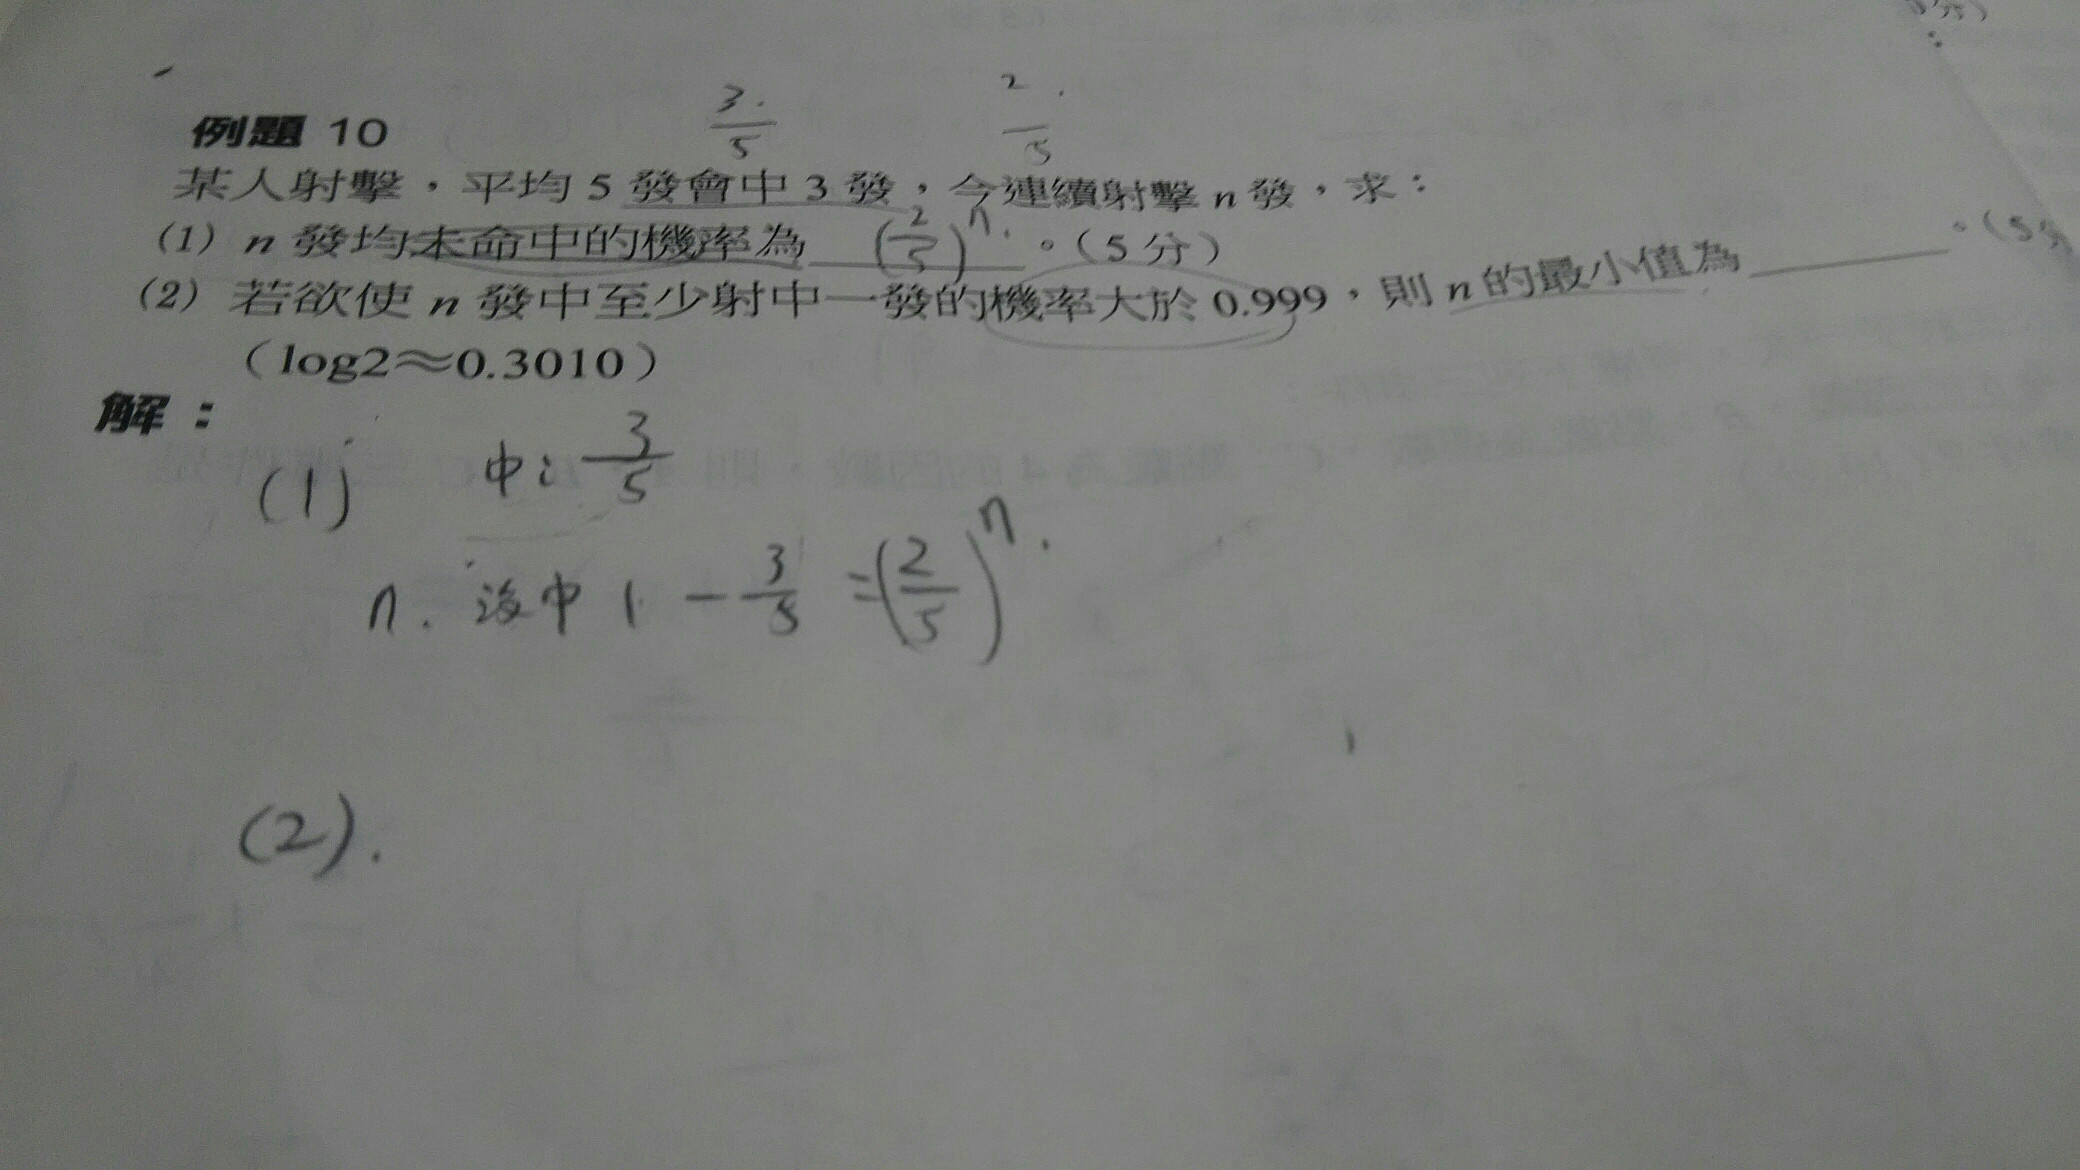 3
5
2
5
例題 10
某人射擊，平均 5 發會中 3 發，今連續射擊 n 發，求：
(1) n 發均未命中的機率為 (2/5)^n 。（5 分）
(2) 若欲使 n 發中至少射中一發的機率大於 0.999，則 n 的最小值為 。（5 分
（log2≈0.3010）
解：
(1) 中：3/5
n. 沒中 1 - 3/5 = (2/5)^n.
(2).